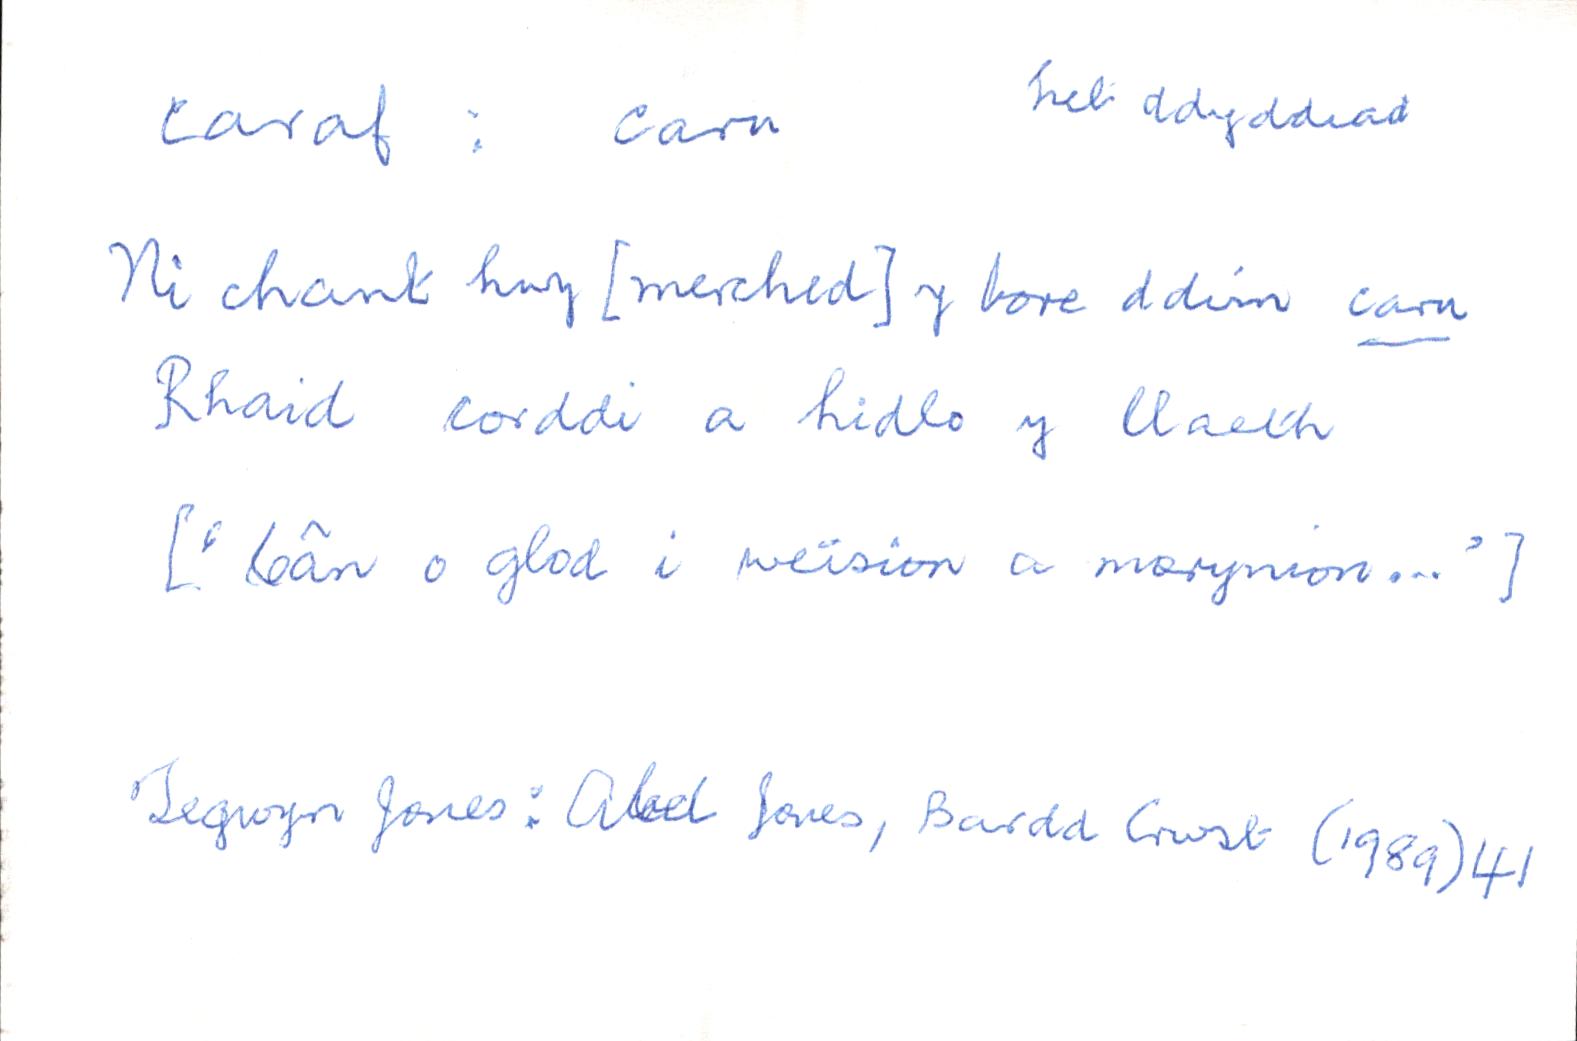 caraf : caru heb ddyddiad
Ni chant hwy [merched] y bore ddim caru
Rhaid corddi a hidlo y llaeth
[‘Cân o glod i weision a morynion...’]
Tegwyn Jones: Abel Jones, Bardd Crwst (1989) 41